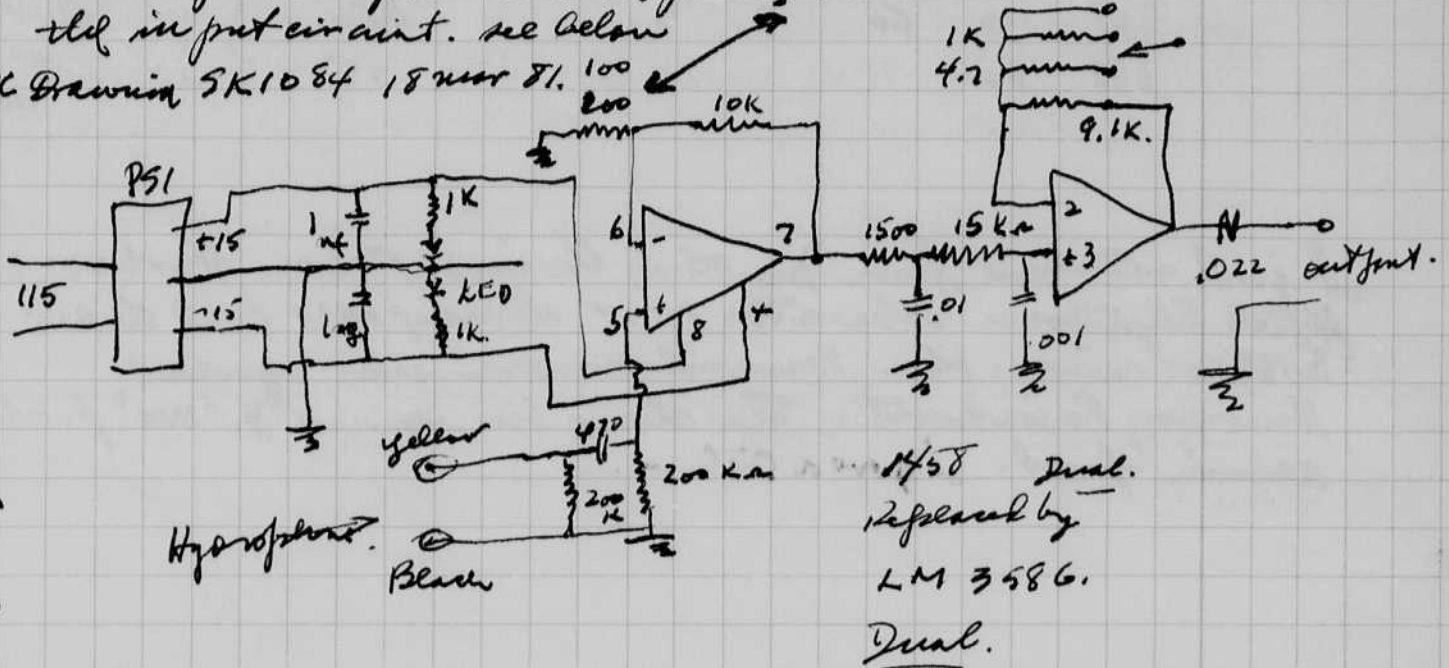 the input circuit. see below
Drawing SK1084 18 mar 81.
100
200
10K
1K
4.7
9.1K.
PS1
+15
-15
115
1
1K
LED
1K.
6
-
7
5
+
8
4
1500
15 K
2
+3
.01
.001
.022
output.
yellow
470
200 K
200
K
Hydrophone.
Black
1458 Dual.
Replaced by
LM 358G.
Dual.